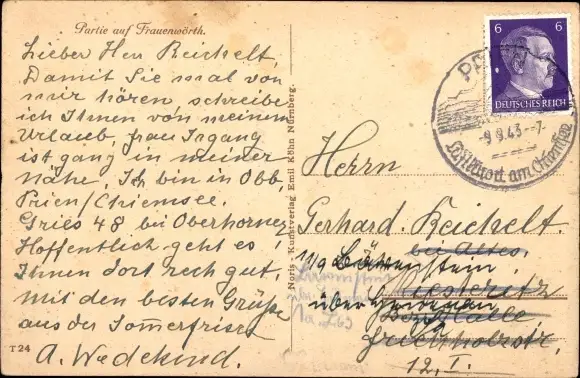 Partie auf Frauenwörth.
Lieber Herr Reichelt,
Damit Sie mal von
mir hören, schreibe
ich Ihnen von meinem
Urlaub, frau Irgang
ist ganz in meiner
Nähe, Ich bin in Obb.
Prien/Chiemsee.
Gries 48 bei Oberhorner
Hoffentlich geht es
Ihnen dort rech gut,
mit den besten Grüße
aus der Somerfrische
A. Wedekind.
T 24
Noris - Kunstverlag Emil Köhn Nürnberg.
6 6
DEUTSCHES REICH
-9.9.43-7-
Luftkurort am Chiemsee
Herrn
Gerhard Reichelt.
bei Altes.
Bärenstein
über
12, I.